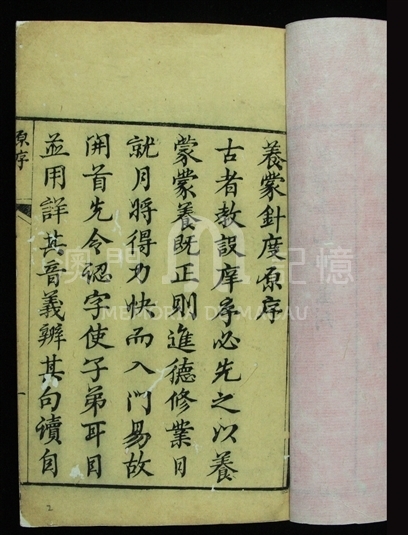 養蒙針度原序
古者教設庠序必先之以養
蒙蒙養既正則進德修業日
就月將得力快而入門易故
開首先令認字使子弟耳目
並用詳其音義辨其句讀自
原序
澳門記憶
MEMÓRIA DE MACAU
2